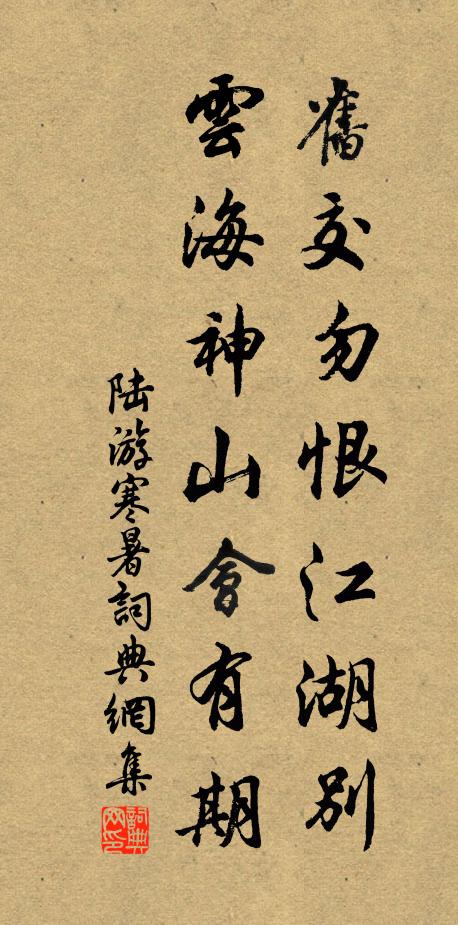 舊交勿恨江湖別
雲海神山會有期
陆游寒暑詞典網集
詞典網印